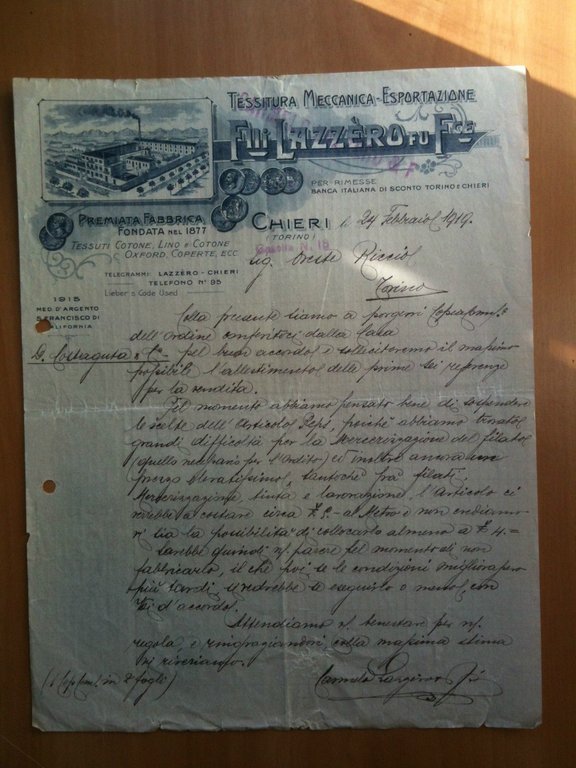 TESSITURA MECCANICA - ESPORTAZIONE
F.LLI LAZZÈRO FU F.CE
PER RIMESSE
BANCA ITALIANA DI SCONTO TORINO E CHIERI
PREMIATA FABBRICA
FONDATA NEL 1877
TESSUTI COTONE, LINO E COTONE
OXFORD, COPERTE, ECC
TELEGRAMMI: LAZZÈRO - CHIERI
TELEFONO Nº 95
Lieber's Code Used
1915
MED. D'ARGENTO
S. FRANCISCO DI
CALIFORNIA
CHIERI li 24 Febbraio 1919.
(TORINO)
Casella N. 18
Sig. Oreste
Torino
Colla presente siamo a porgervi
dell'Ordine conferitoci dalla Casa
D. Costaguta & C. pel buon accordo e solleciteremo il massimo
possibile l'allestimento delle prime sei
per la vendita.
Pel momento abbiamo pensato bene di sospendere
le scelte dell'Articolo Reps, poichè abbiamo trovato
grandi difficoltà per la Mercerizzazione del filato
(quello necessario per l'Ordito) ed inoltre ancora un
prezzo elevatissimo, tantochè fra filati,
Mercerizzazione, tinta e lavorazione, l'Articolo ci
verrebbe a costare circa al Metro e non crediamo
vi sia la possibilità di collocarlo almeno a £ 4.=
Sarebbe quindi ns/ parere pel momento di non
fabbricarlo, il che poi se le condizioni miglioreranno
più tardi si vedrebbe se eseguirlo o meno, con
Voi d'accordo.
Attendiamo vs/ benestare per ns/
regola, e ringraziandovi, colla massima stima
Vi riveriamo.
(1 Cop. Com. in 2 fogli)